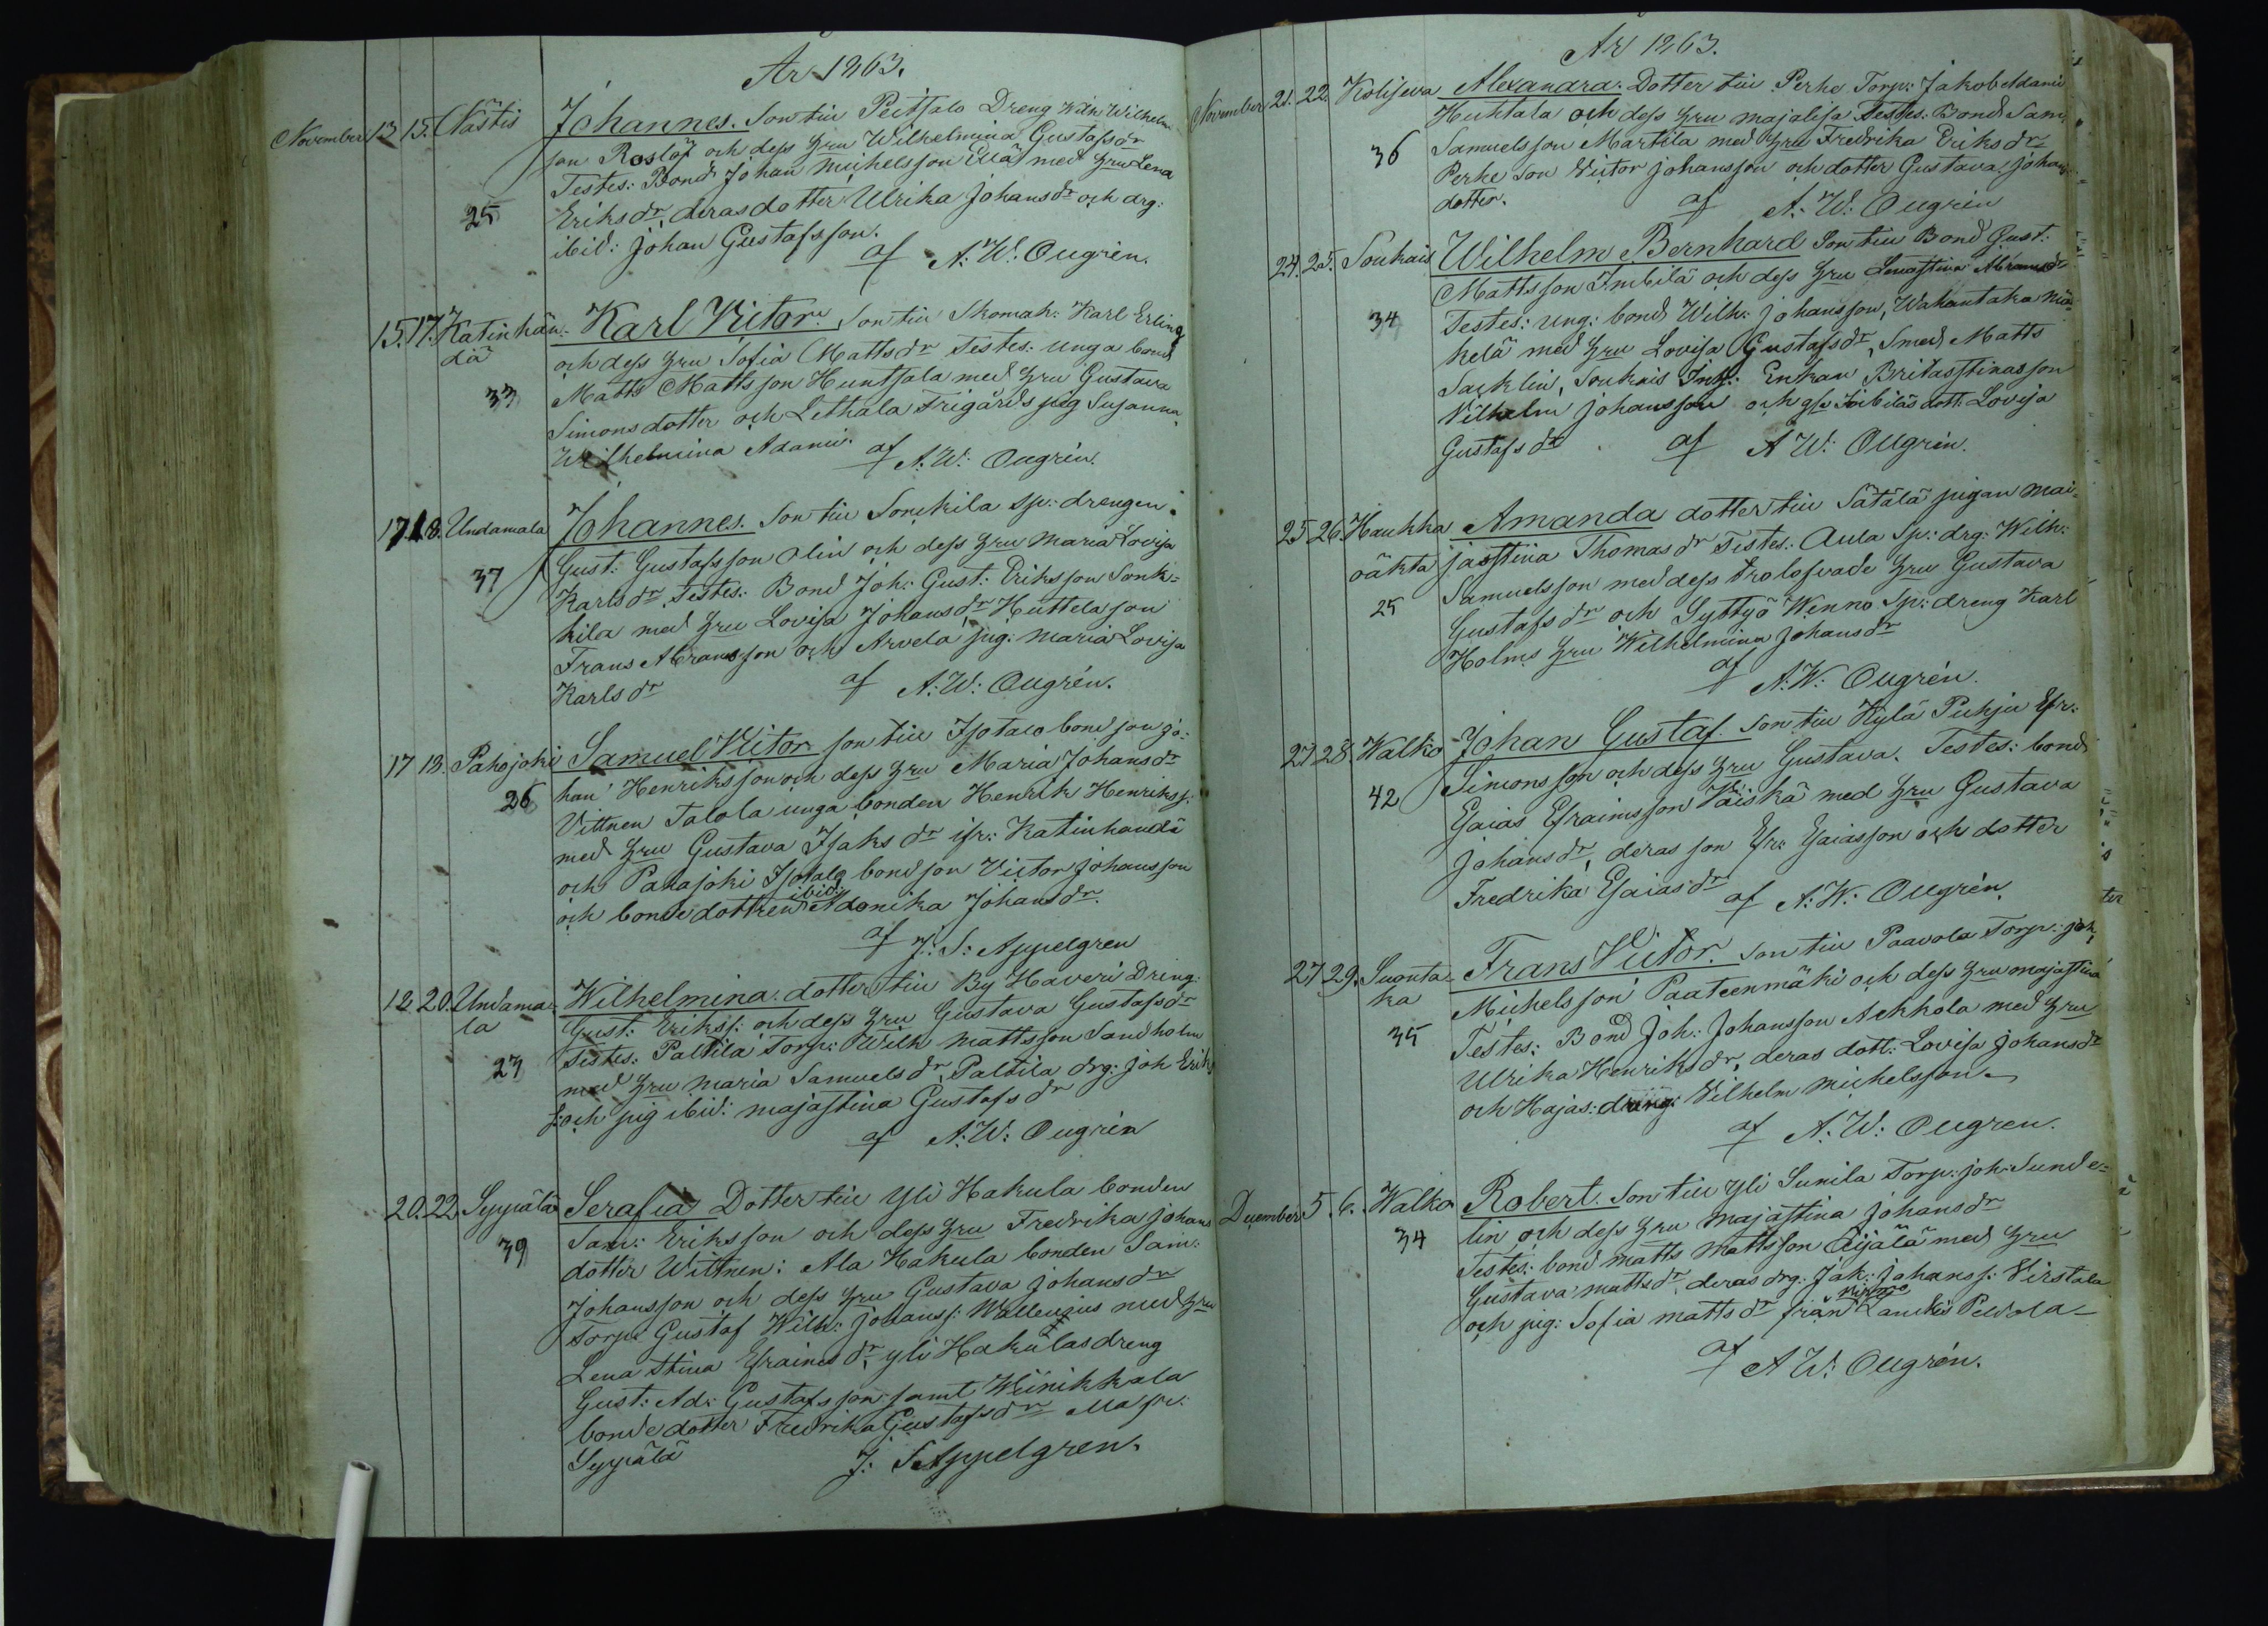 År 1863.
November 13 15. Nästis Johannes. Son till Peitsalo Dreng Karl Wilhelm
son Roslöf och dess hru Wilhelmina Gustafsdr
Testes: Bond Johan Michelsson Eilä med hru Lena
25 Eriksdr, deras dotter Ulrika Johansdr och drg:
ibid: Johan Gustafsson.
af A: W: Ougrén.
15. 17. Katinhän- Karl Victor. Son till Skomak: Karl Erling
dä och dess hru Sofia Mattsdr Testes: unga bond
33 Matts Mattsson Huntsala med hru Gustava
Simonsdotter och Lethala Tregårds pig Susanna
Wilhelmina Adami.
af A: W: Ougrén.
17. 18. Undamala Johannes. Son till Sonkila sp: drengen
37 Gust: Gustafsson Olin och dess hru Maria Lovisa
Karlsdr. Testes: Bond Joh: Gust: Eriksson Sonk-
kila med hru Lovisa Johansdr, Huttela son
Frans Abramsson och Arvela pig: Maria Lovisa
Karlsdr
af A: W: Ougrén.
17 18. Pahojoki Samuel Victor son till Isotalo bond son Jo-
26 han Henriksson och dess hru Maria Johansdr
Vittnen Talola unga bonden Henrik Henrikss:
med hru Gustava Isaksdr ifr: Katinhändä
och Pahajoki Isotalo bond son Victor Johansson
och bondedottren ibid: Adonika Johansdr.
af J: S: Appelgren
18 20. Undama- Wilhelmina. dotter till By Haveri Dreng:
la Gust: Erikss: och dess hru Gustava Gustafsdr
23 Testes: Paltila Torp: Wilh Mattsson Sandholm
med hru Maria Samuelsdr, Paltila drg: Joh Eriks
s: och pig ibid: Majastina Gustafsdr
af A: W: Ougrén
20. 22. Syyjälä Serafia Dotter till Yli Hakula bonden
39 Sam: Eriksson och dess hru Fredrika Johans
dotter Vittnen: Ala Hakula bonden Sam:
Johansson och dess hru Gustava Johansdr
Torp: Gustaf Wilh: Johanss: Wallenius med hru
Lena Stina Efraimsdr, Yli Hakulas dreng
Gust: Ad: Gustafsson samt Weinikkala
bondedotter Fredrika Gustafsdr alla fr:
Syyjälä
J: S Appelgren.
År 1863.
November 21. 22. Kolisewa Alexandra. Dotter till Perhe Torp: Jakob Adami
Huhtala och dess hru Majalisa Testes: Bond Sam:
36 Samuelsson Martila med hru Fredrika Eriksdr
Perhe Son Victor Johansson och dotter Gustava Johans
dotter.
af A: W: Ougrén
24. 25. Soukais Wilhelm Bernhard Son till Bond Gust:
Mattsson Imbilä och dess hru Lenastina Abramsdr
34 Testes: Ung: bond Wilh: Johansson, Wahantaka Mä-
kelä med hru Lovisa Gustafsdr, Smed Matts
Sacklin, Soukais Inh: Enkan Britastinas son
Vilhelm Johansson och gfl Imbiläs dott: Lovisa
Gustafsdr
af A W: Ougrén.
25 26. Haukka Amanda dotter till Sätälä pigan Mai-
oäkta jastina Thomasdr Testes: Aula Sp: drg: Wilh:
25 Samuelsson med dess trolofvade hru Gustava
Gustafsdr och Syttyö Wenno Sp: dreng Karl
Holms hru Wilhelmina Johansdr
af A: W: Ougrén.
27 28. Walko Johan Gustaf. Son till Kylä Puhju Efr:
42 Simonsson och dess hru Gustava. Testes: bond
Esaias Efraimsson Väiskä med hru Gustava
Johansdr, deras son Efr: Esaiasson och dotter
Fredrika Esaiasdr
af A: W: Ougrén.
27 29. Suonta- Frans Victor. Son till Paavola Torp: Joh:
ka Michelsson Paateenmäki och dess hru Majastina
35 Testes: Bond Joh: Johansson Ackkola med hru
Ulrika Henriksdr, deras dott: Lovisa Johansdr
och Hajas: dräng: Vilhelm Michelsson
af A: W: Ougren.
December 5. 6. Walko Robert. Son till Yli Sunila Torp: Joh: Sunde-
34 lin och dess hru Majastina Johansdr
Testes: bond Matts Mattsson Äijälä med hru
Gustava Mattsdr, deras drg: Jak: Johanss: Virstala
och pig: Sofia Mattsdr från Peldola
af A W: Ougrén.